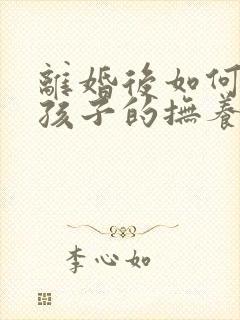 離婚後如何
孩子的撫養
李心如